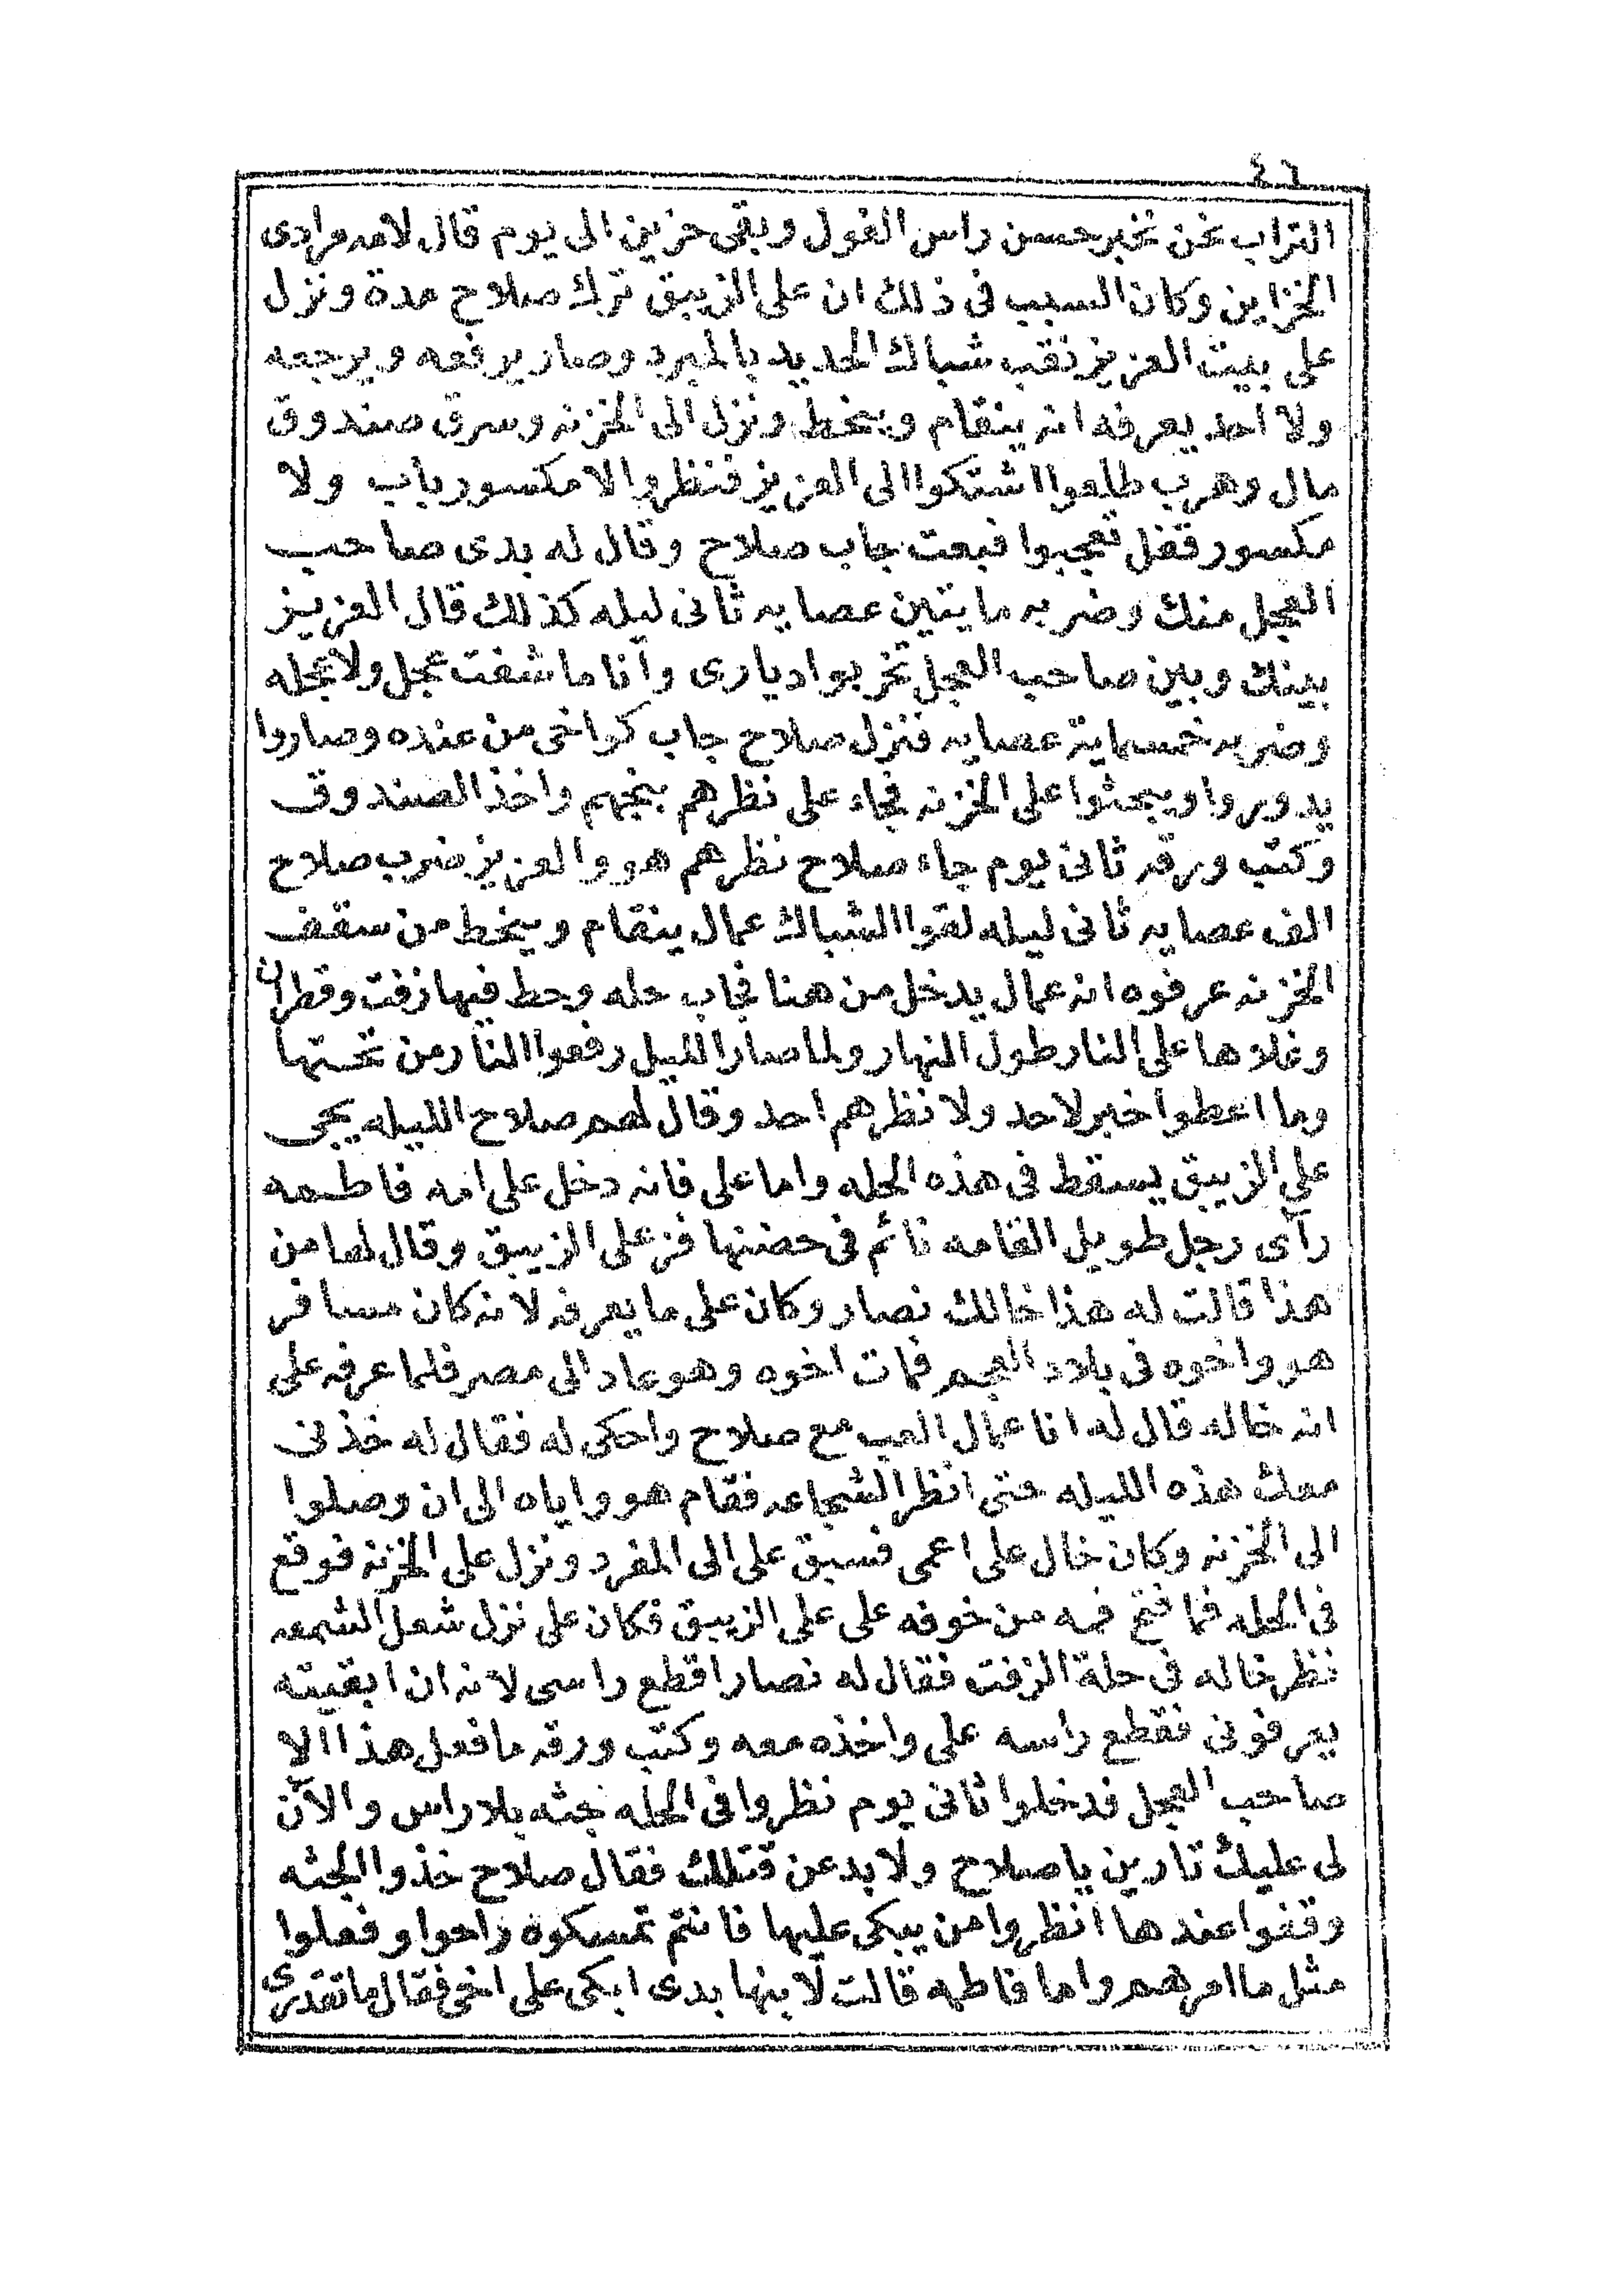 ٤٦
التراب نحن نخبر حسن راس الغول وبقى حزين الى يوم قال لامه مرادى
الخزاين وكان السبب فى ذلك ان على الزيبق ترك صلاح مدة ونزل
على بيت العزيز نقب شباك الحديد بالمبرد وصار يرفعه ويرجعه
ولا احد يعرفه انه ينقام وينحط ونزل الى الخزنه وسرق صندوق
مال وهرب طلعوا اشتكوا الى العزيز فنظروا لا مكسور باب ولا
مكسور قفل تعجبوا فبعت جاب صلاح وقال له بدى صاحب
العجل منك وضربه مايتين عصايه ثانى ليله كذلك قال العزيز
بينك وبين صاحب العجل تخربوا ديارى وأنا ما شفت عجل ولا عجله
وضربه خمسماية عصايه فنزل صلاح جاب كواخى من عنده وصاروا
يدوروا ويبحثوا على الخزنه فجاء على نظرهم بنجهم واخذ الصندوق
وكتب ورقه ثانى يوم جاء صلاح نظرهم هو والعزيز ضرب صلاح
الف عصايه ثانى ليله لقوا الشباك عمال ينقام وينحط من سقف
الخزنه عرفوه انه عمال يدخل من هنا فجاب حله وحط فيها زفت وقطران
وغلاها على النار طول النهار ولما صار الليل رفعوا النار من تحتها
وما اعطوا خبر لاحد ولا نظرهم احد وقال لهم صلاح الليله يجى
على الزيبق يسقط فى هذه الحله واما على فانه دخل على امه فاطمه
رآى رجل طويل القامه نائم فى حضنها فز على الزيبق وقال لها من
هذا قالت له هذا خالك نصار وكان على ما يعرفه لانه كان مسافر
هو واخوه فى بلاد العجم فمات اخوه وهو عاد الى مصر فلما عرفه على
انه خاله قال له انا عمال العب مع صلاح واحكى له فقال له خذنى
معك هذه الليله حتى انظر الشجاعه فقام هو واياه الى ان وصلوا
الى الخزنه وكان خال على اعمى فسبق على الى المفرد ونزل على الخزنه فوقع
فى الحله فما فتح فمه من خوفه على على الزيبق فكان على نزل شعل الشمعه
نظر خاله فى حلة الزفت فقال له نصار اقطع راسى لانه ان ابقيته
يعرفونى فقطع راسه على واخذه معه وكتب ورقه ما فعل هذا الا
صاحب العجل فدخلوا ثانى يوم نظروا فى الحله جثه بلا راس والآن
لى عليك تارين يا صلاح ولا بد عن قتلك فقال صلاح خذوا الجثه
وقفوا عندها انظروا من يبكى عليها فانتم تمسكوه راحوا وفعلوا
مثل ما امرهم واما فاطمه قالت لابنها بدى ابكى على اخى فقال ما تقدرى